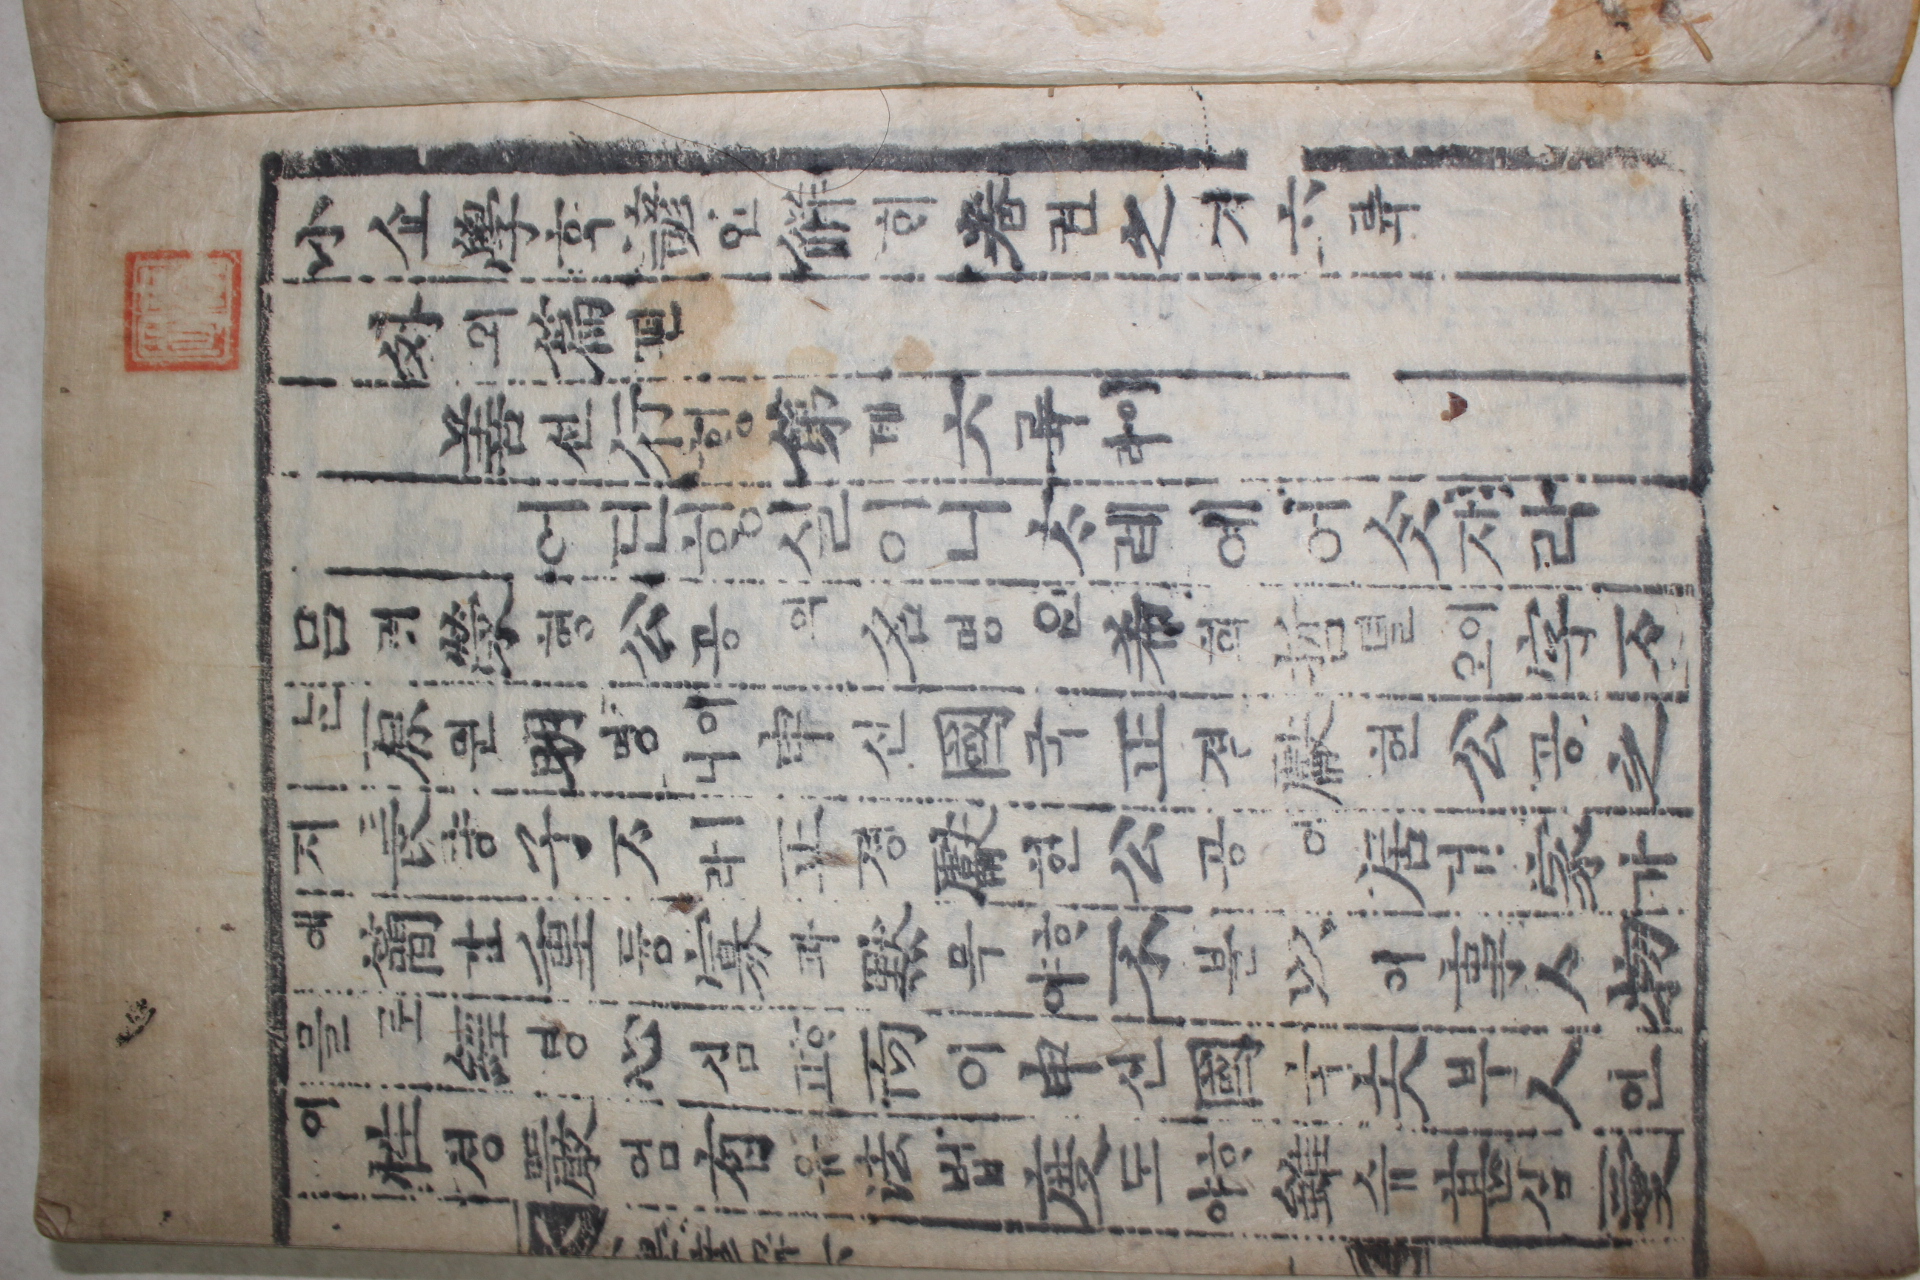 小쇼學학諺언解해卷권之지六륙
外외篇편
善션行ᄒᆡᆼ第뎨六륙이라
어딘ᄒᆡᆼ실이니ᄎᆞ례예여슷재라
呂려滎형公공의名명은希희哲텰이오字ᄌᆞᄂᆞᆫ
原원明명이니申신國국正졍獻헌公공之
지長댱子ᄌᆞㅣ라正졍獻헌公공이居거家가
애簡간重듕寡과默믁ᄒᆞ야不블以이事ᄉᆞ物
믈로經경心심ᄒᆞ고而이申신國국夫부人인
이性셩嚴엄有유法법度도ᄒᆞ야雖슈甚심愛